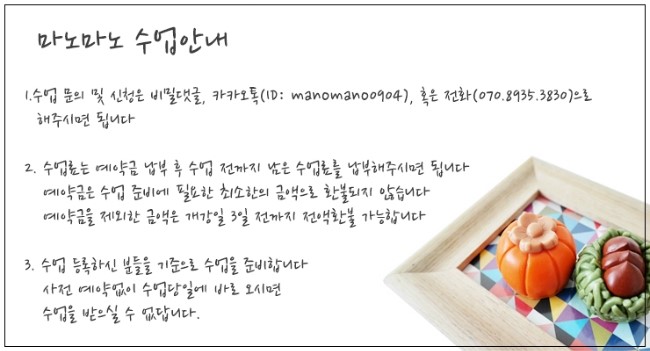 마노마노 수업안내
1.수업 문의 및 신청은 비밀댓글, 카카오톡(ID: manomano0904), 혹은 전화(070.8935.3830)으로
해주시면 됩니다
2. 수업료는 예약금 납부 후 수업 전까지 남은 수업료를 납부해주시면 됩니다
예약금은 수업 준비에 필요한 최소한의 금액으로 환불되지 않습니다
예약금을 제외한 금액은 개강일 3일 전까지 전액환불 가능합니다
3. 수업 등록하신 분들을 기준으로 수업을 준비합니다
사전 예약없이 수업당일에 바로 오시면
수업을 받으실 수 없답니다.